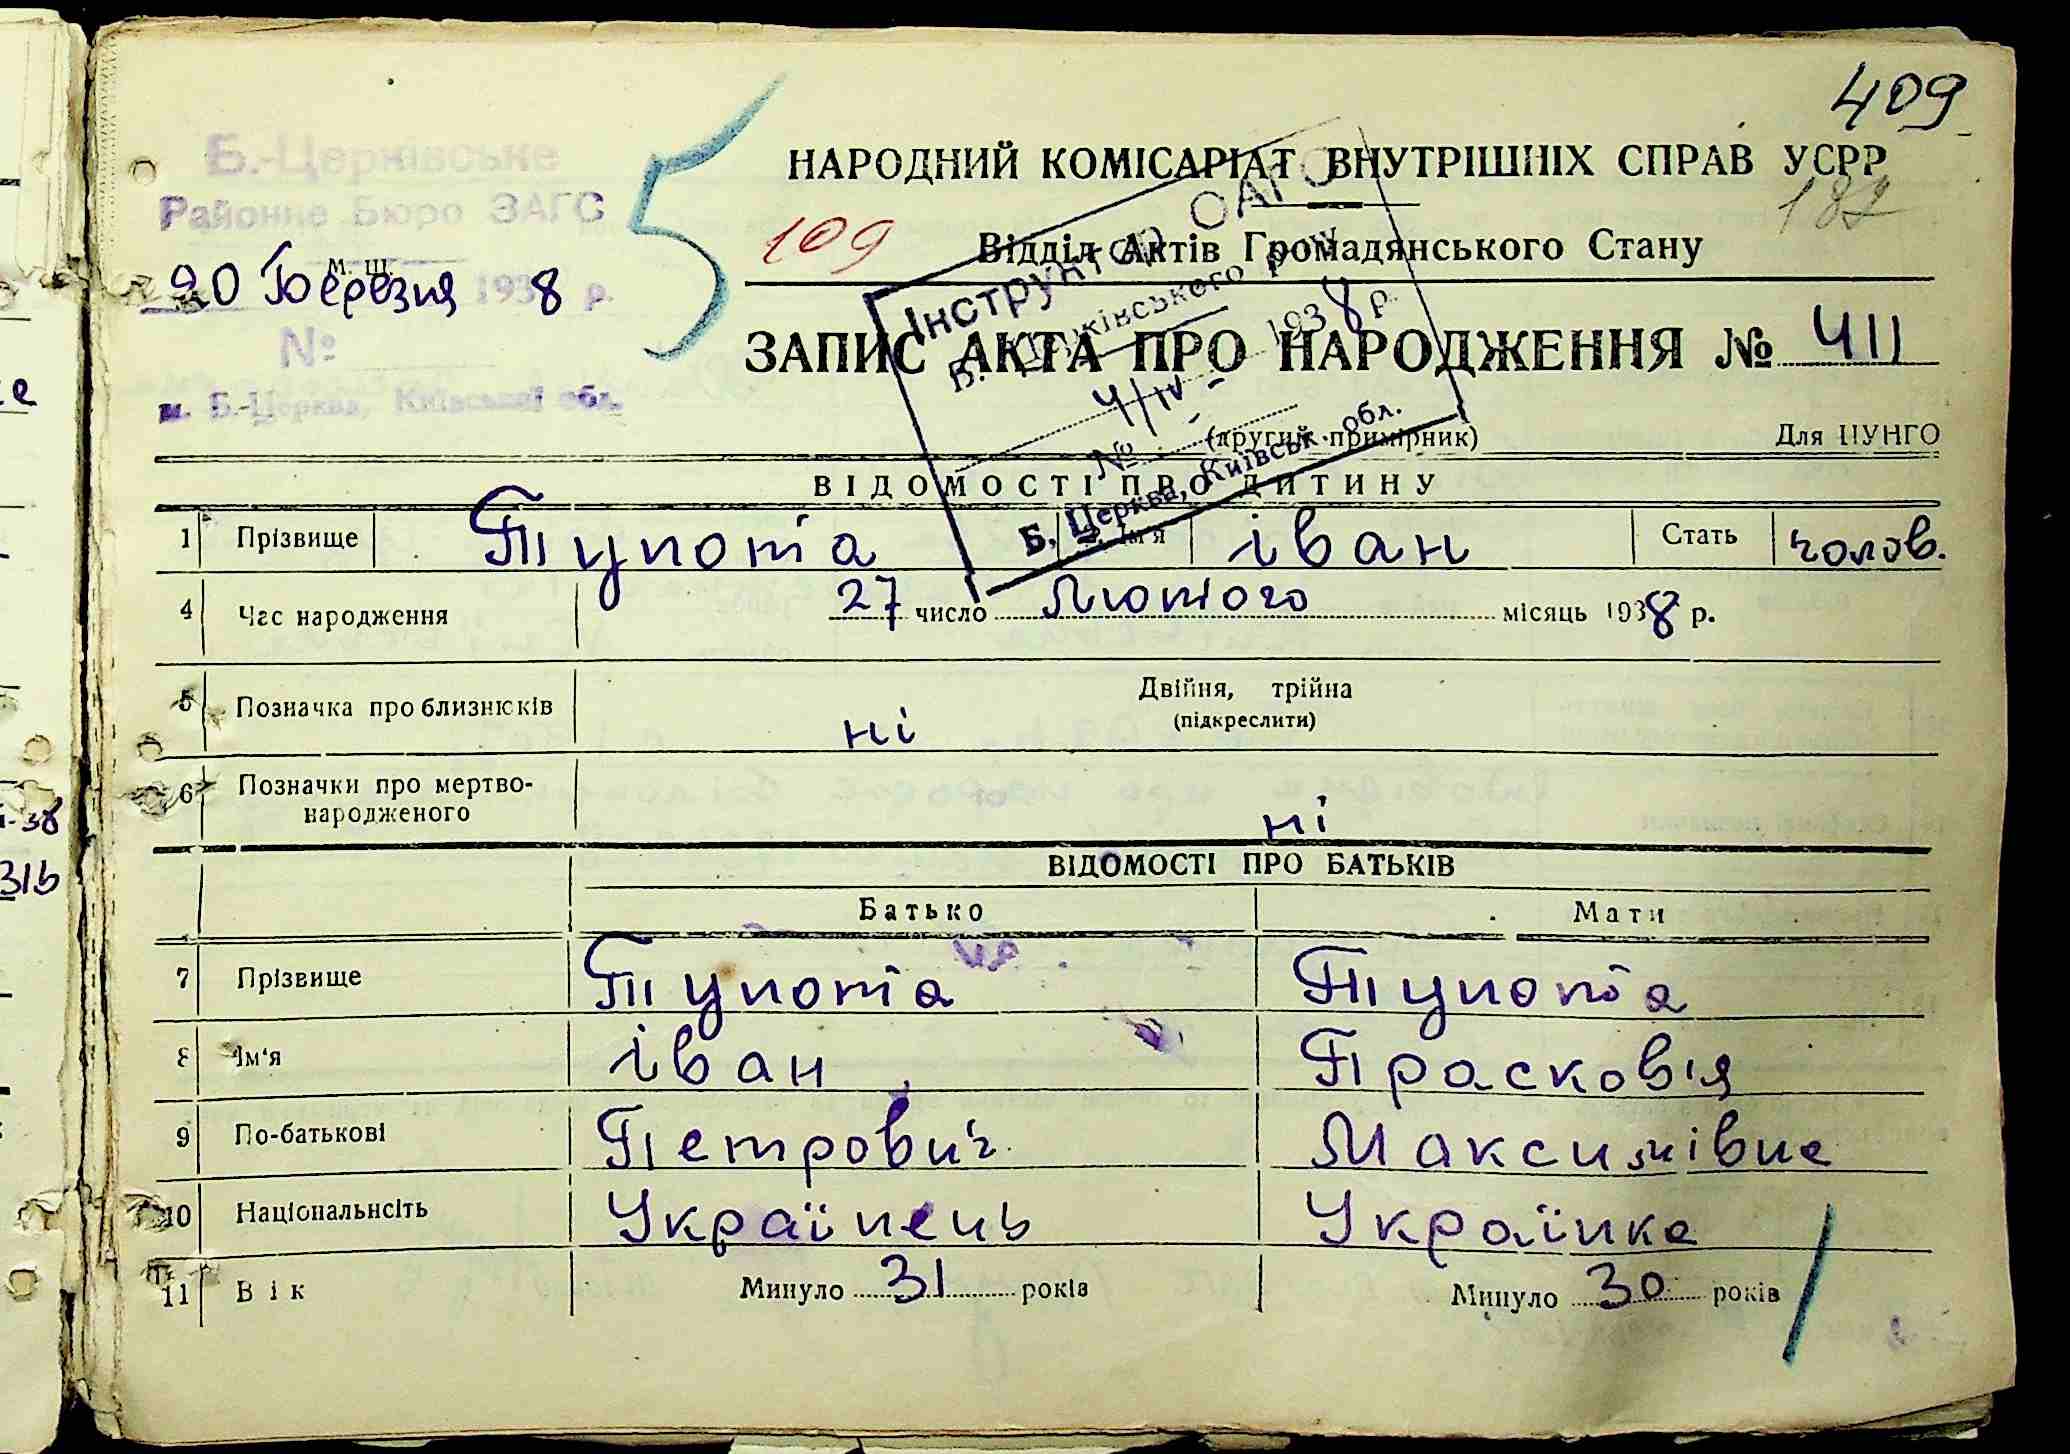 409
Б.-Церківське
Районне Бюро ЗАГС
20 Березня 1938 р.
№
м. Б.-Церква, Київської обл.
5
НАРОДНИЙ КОМІСАРІАТ ВНУТРІШНІХ СПРАВ УСРР
182
109
Відділ Актів Громадянського Стану
ЗАПИС АКТА ПРО НАРОДЖЕННЯ № 411
Інструктор ОАГС
Б. Церківського р-ну
4/IV 1938 р.
№
Б. Церква, Київськ. обл.
(другий примірник)
Для ЦУНГО
ВІДОМОСТІ ПРО ДИТИНУ
1 Прізвище Тупота Ім'я іван Стать чолов.
4 Час народження 27 число Лютого місяць 1938 р.
5 Позначка про близнюків ні Двійня, трійна
(підкреслити)
6 Позначки про мертво-
народженого ні
ВІДОМОСТІ ПРО БАТЬКІВ
Батько Мати
7 Прізвище Тупота Тупота
8 Ім'я іван Прасковія
9 По-батькові Петрович Максимівна
10 Національнсіть Українець Українка
11 Вік Минуло 31 років Минуло 30 років